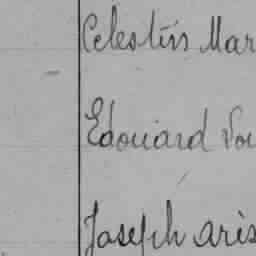 Celestin Mar
Edouard Sou
Joseph Aris